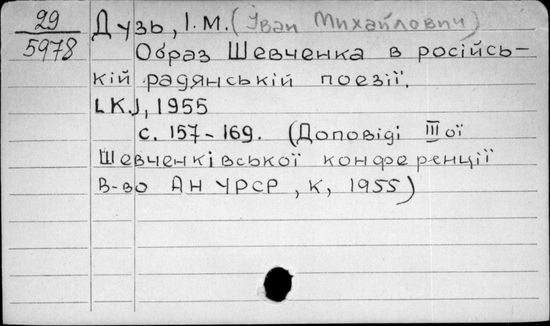 29
5978
Дузь, І. М. (Іван Михайлович)
Образ Шевченка в російсь-
кій радянській поезії.
[К.], 1955
с. 157-169. (Доповіді III ої
Шевченківської конференції
В-во АН УРСР, К, 1955)